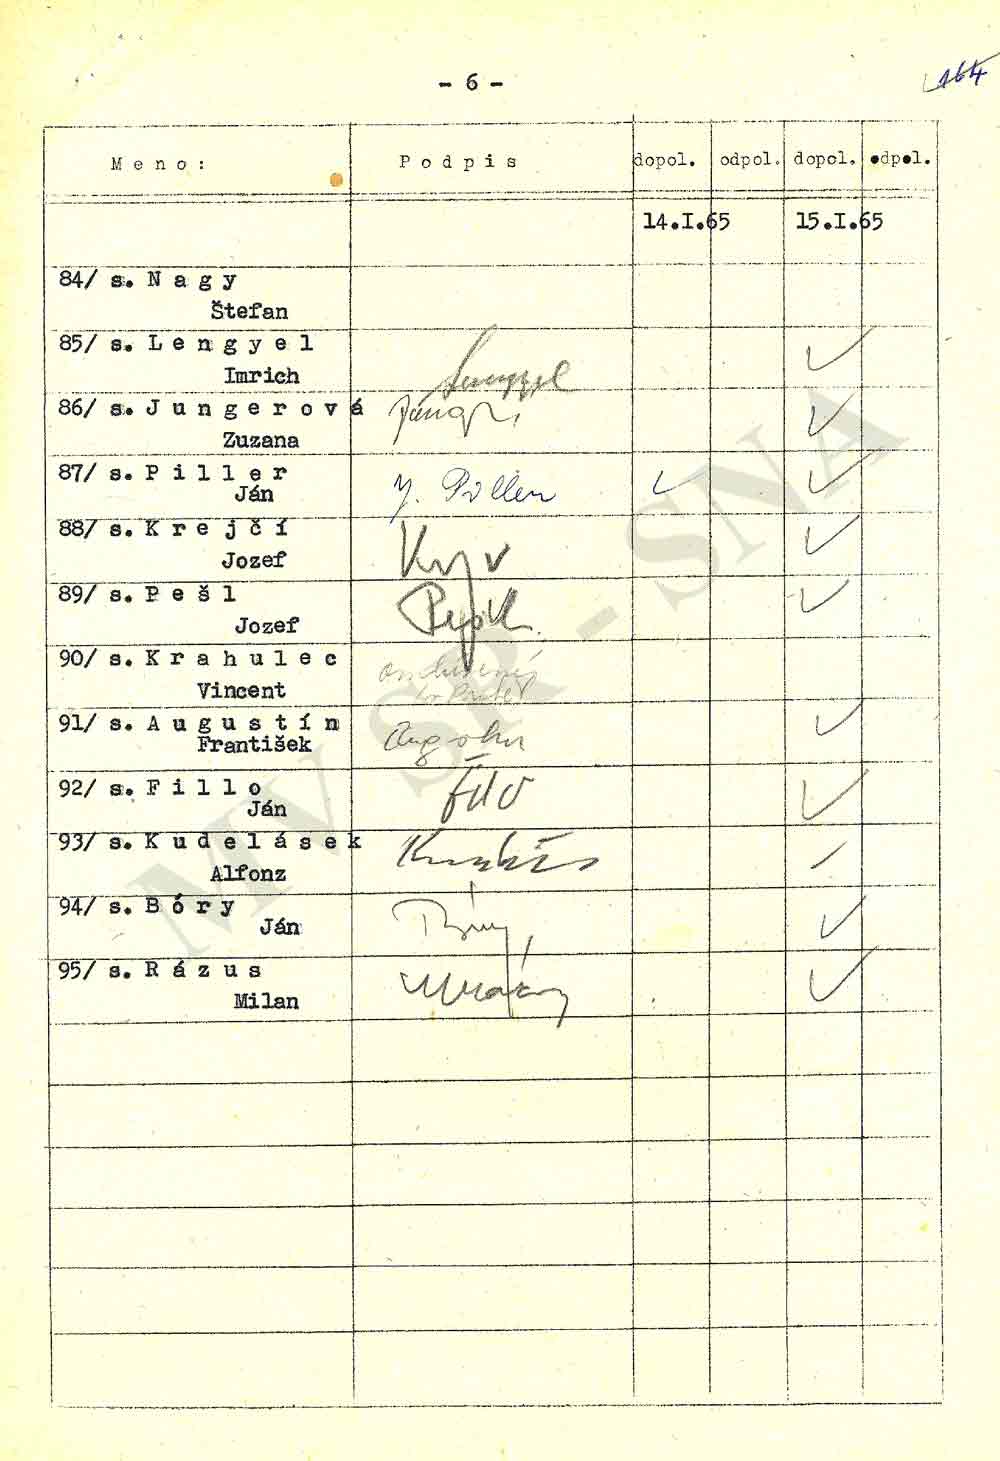 - 6 -
164
Meno: Podpis dopol. odpol. dopol. odpol.
14.I.65 15.I.65
84/ s. Nagy
Štefan
85/ s. Lengyel
Imrich Lengyel
86/ s. Jungerová
Zuzana
87/ s. Piller
Ján J. Piller
88/ s. Krejčí
Jozef
89/ s. Pešl
Jozef
90/ s. Krahulec
Vincent
91/ s. Augustín
František
92/ s. Fillo
Ján Fillo
93/ s. Kudelásek
Alfonz
94/ s. Bóry
Ján Bóry
95/ s. Rázus
Milan
MV SR - SNA